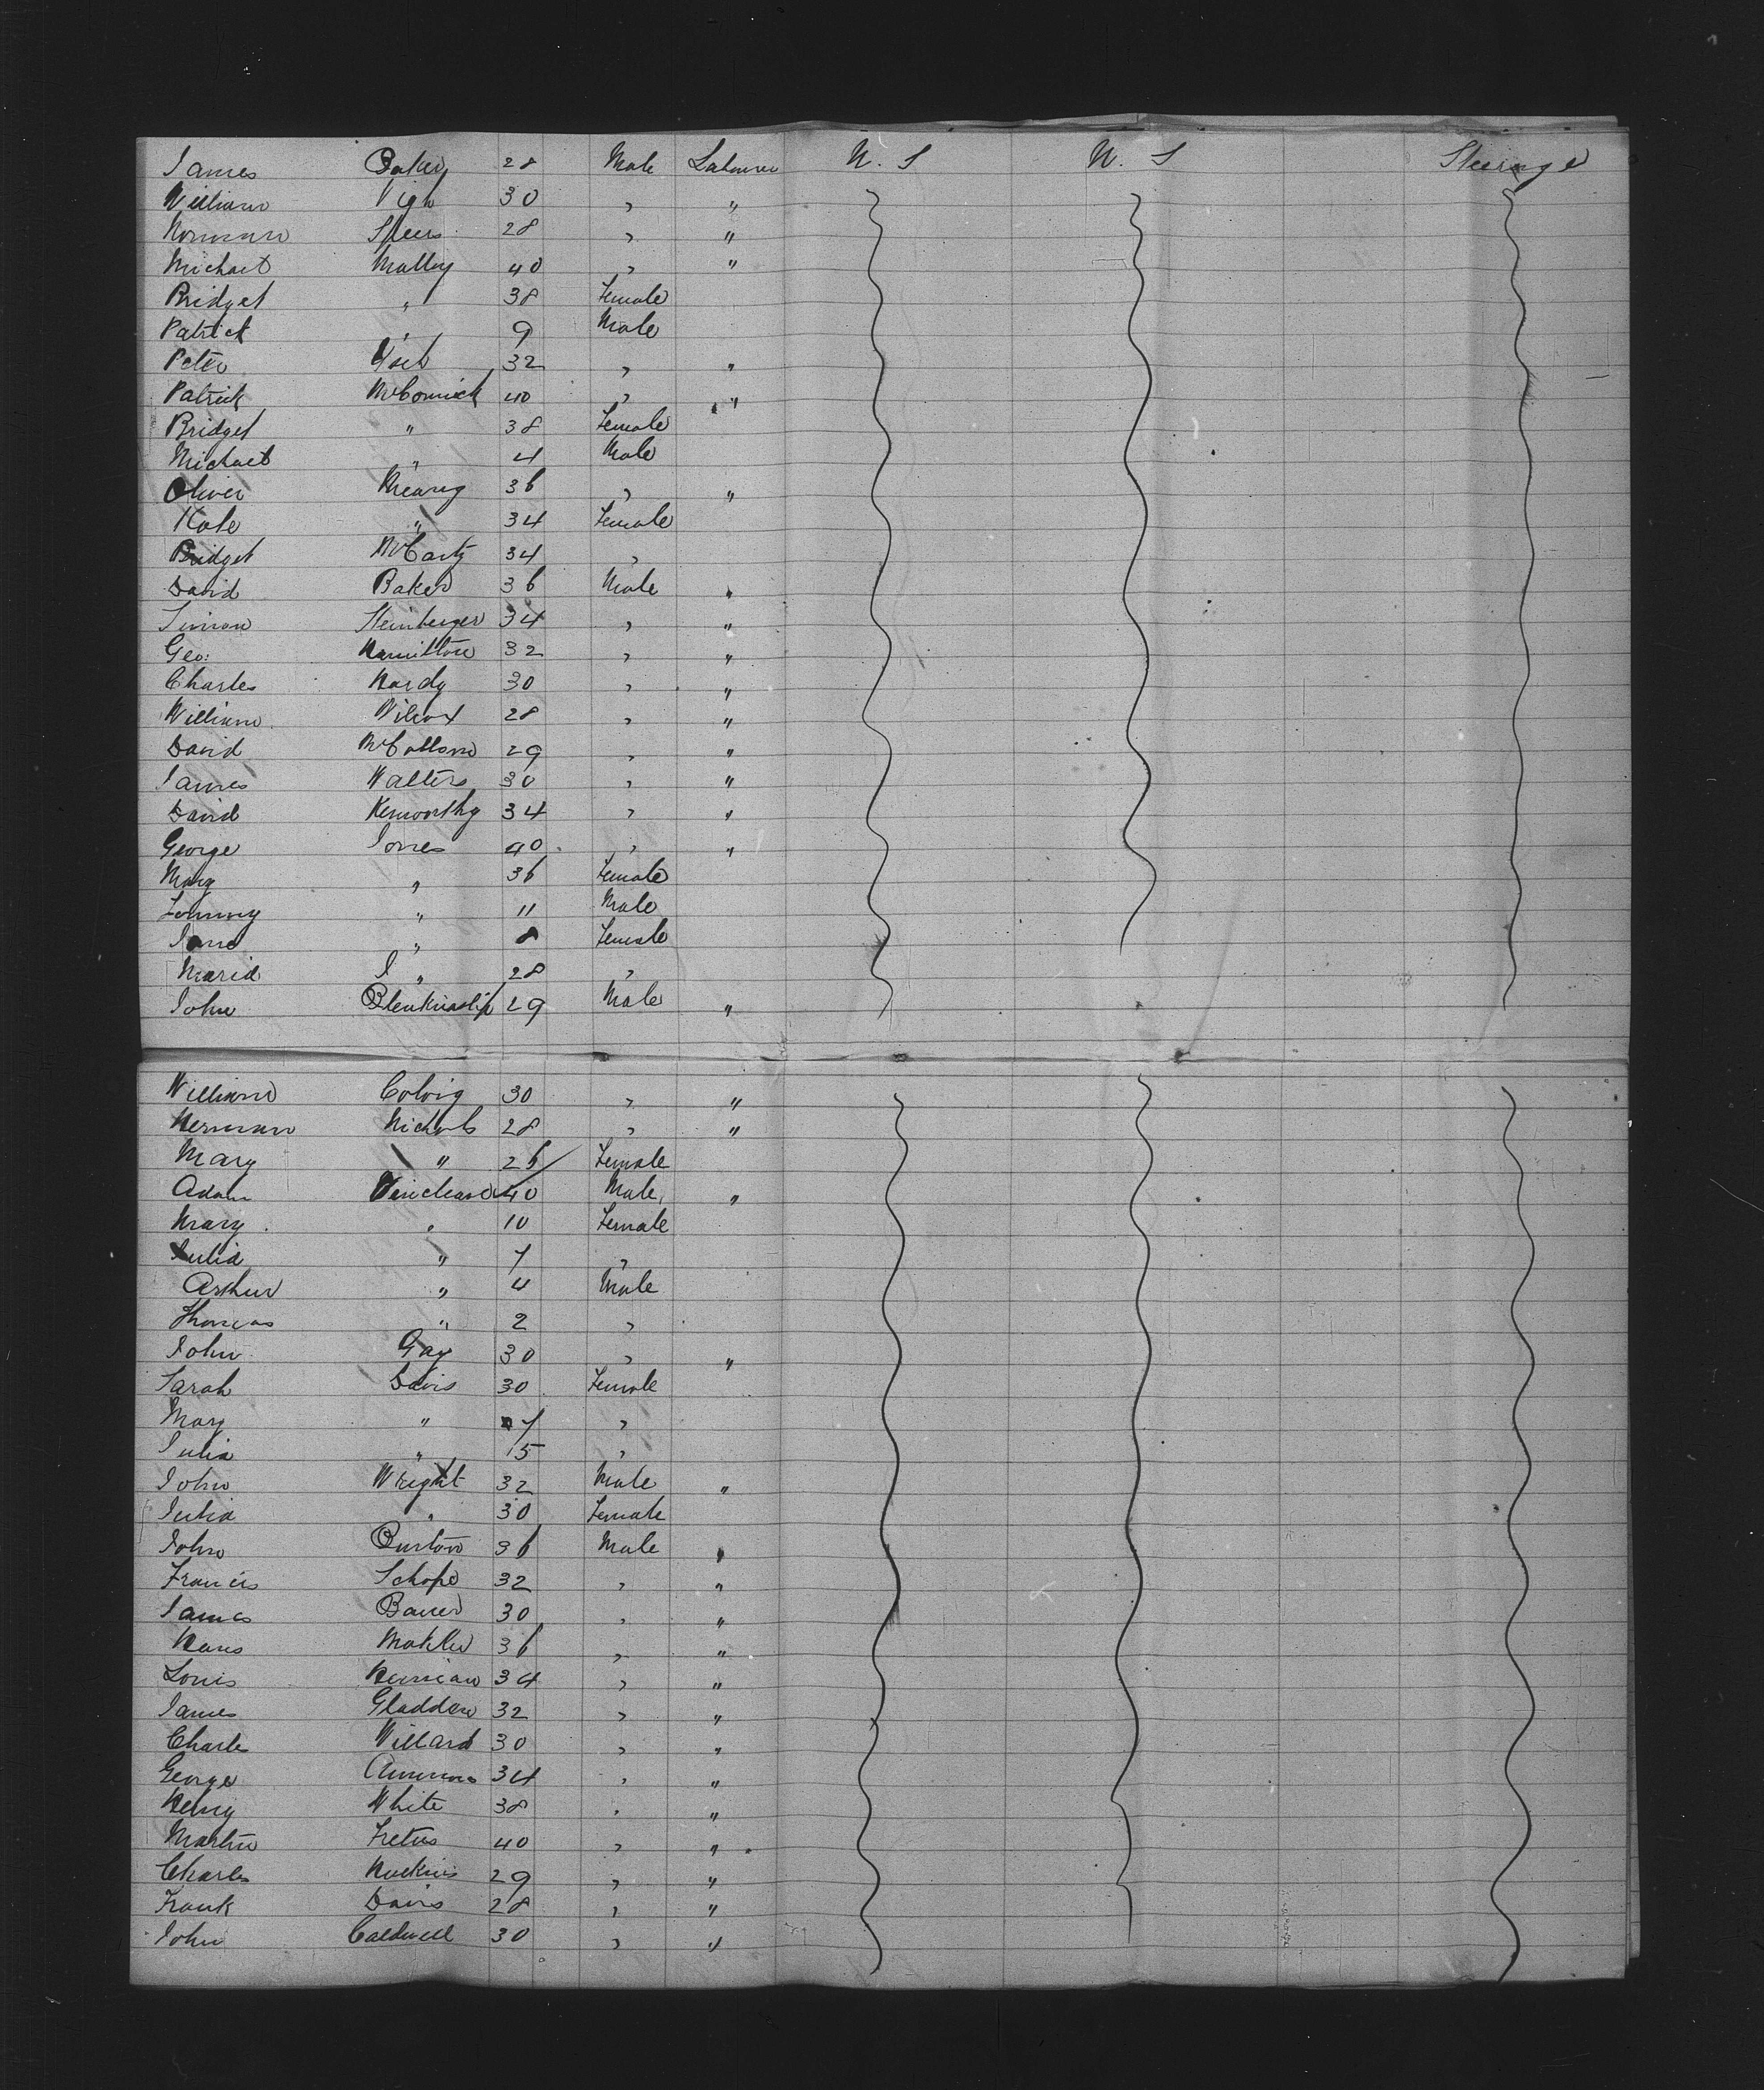 James Baker 28 Male Labourer U. S U. S Steerage
William Vigh 30 " "
Norman Speers 28 " "
Michael Malley 40 " "
Bridget " 38 Female
Patrick " 9 Male
Peter 32 " "
Patrick McCormick 40 " "
Bridget " 38 Female
Michael " 4 Male
Oliver 36 " "
Kate " 34 Female
Bridget McCarty 34 "
David Baker 36 Male "
Simon Steinberger 34 " "
Geo: Hamilton 32 " "
Charles Hardy 30 " "
William Wilcox 28 " "
David McCollom 29 " "
James Walters 30 " "
David Kenworthy 34 " "
George Jones 40 " "
Mary " 36 Female
Tommy " 11 Male
Jane " 8 Female
Maria J " 28 "
John Blenkinship 29 Male "
William Colvig 30 " "
Herman Nichols 28 " "
Mary " 26 Female
Adam 40 Male "
Mary " 10 Female
Julia " 7 "
Arthur " 4 Male
Thomas " 2 "
John Gay 30 " "
Sarah Davis 30 Female
Mary " 7 "
Julia " 15 "
John Wright 32 Male "
Julia " 30 Female
John Burton 36 Male "
Francis Schope 32 " "
James Bauer 30 " "
Hans Mahler 36 " "
Louis Herman 34 " "
James Gladden 32 " "
Charles Willard 30 " "
George Ammons 34 " "
Henry White 38 " "
Martin Fretus 40 " "
Charles Huckins 29 " "
Frank Davis 28 " "
John Caldwell 30 " "